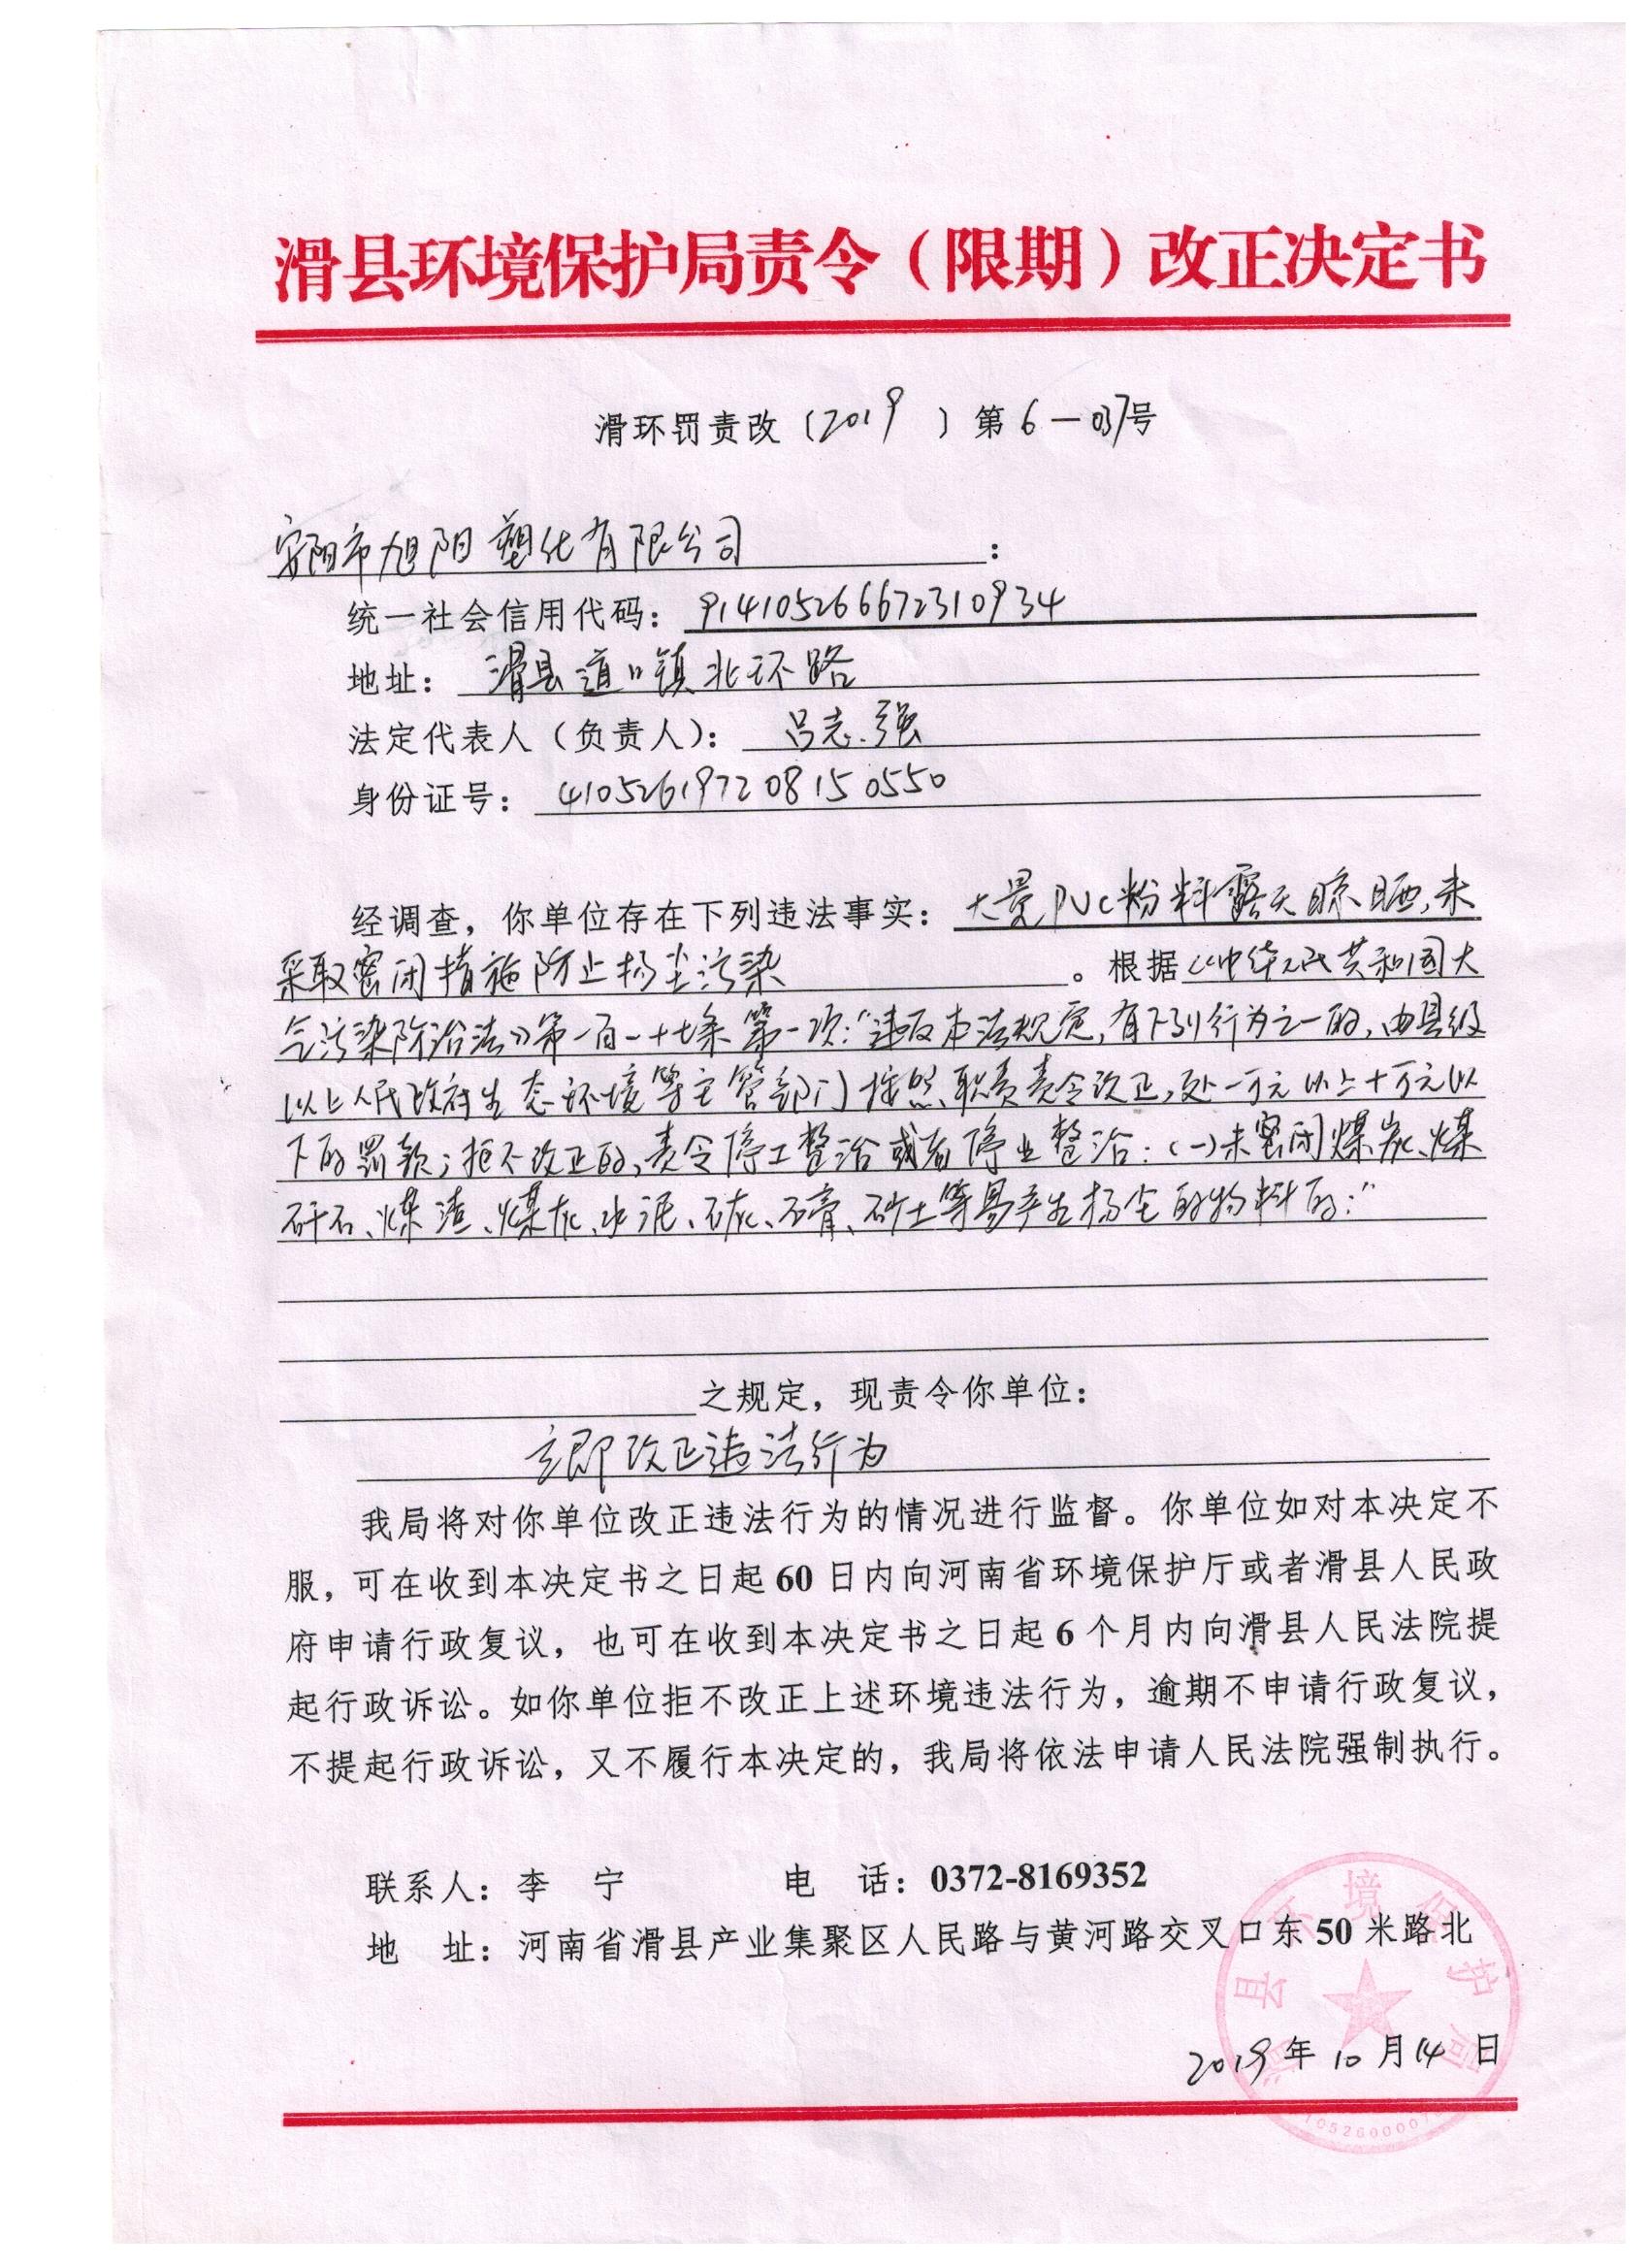 滑县环境保护局责令（限期）改正决定书
滑环罚责改〔2019 〕第6-037号
安阳市旭阳塑化有限公司：
统一社会信用代码：914105266672310934
地址：滑县道口镇北环路
法定代表人（负责人）：吕志强
身份证号：410526197208150550
经调查，你单位存在下列违法事实：大量PVC粉料露天晾晒，未
采取密闭措施防止扬尘污染。根据《中华人民共和国大
气污染防治法》第一百一十七条第一次：“违反本法规定，有下列行为之一的，由县级
以上人民政府生态环境等主管部门按照职责责令改正，处一万元以上十万元以
下的罚款；拒不改正的，责令停工整治或者停业整治：（一）未密闭煤炭、煤
矸石、煤渣、煤灰、水泥、石灰、石膏、砂土等易产生扬尘的物料的；”
之规定，现责令你单位：
立即改正违法行为
我局将对你单位改正违法行为的情况进行监督。你单位如对本决定不
服，可在收到本决定书之日起60日内向河南省环境保护厅或者滑县人民政
府申请行政复议，也可在收到本决定书之日起6个月内向滑县人民法院提
起行政诉讼。如你单位拒不改正上述环境违法行为，逾期不申请行政复议，
不提起行政诉讼，又不履行本决定的，我局将依法申请人民法院强制执行。
联系人：李 宁 电 话：0372-8169352
地 址：河南省滑县产业集聚区人民路与黄河路交叉口东50米路北
滑县环境保护局
2019年10月14日